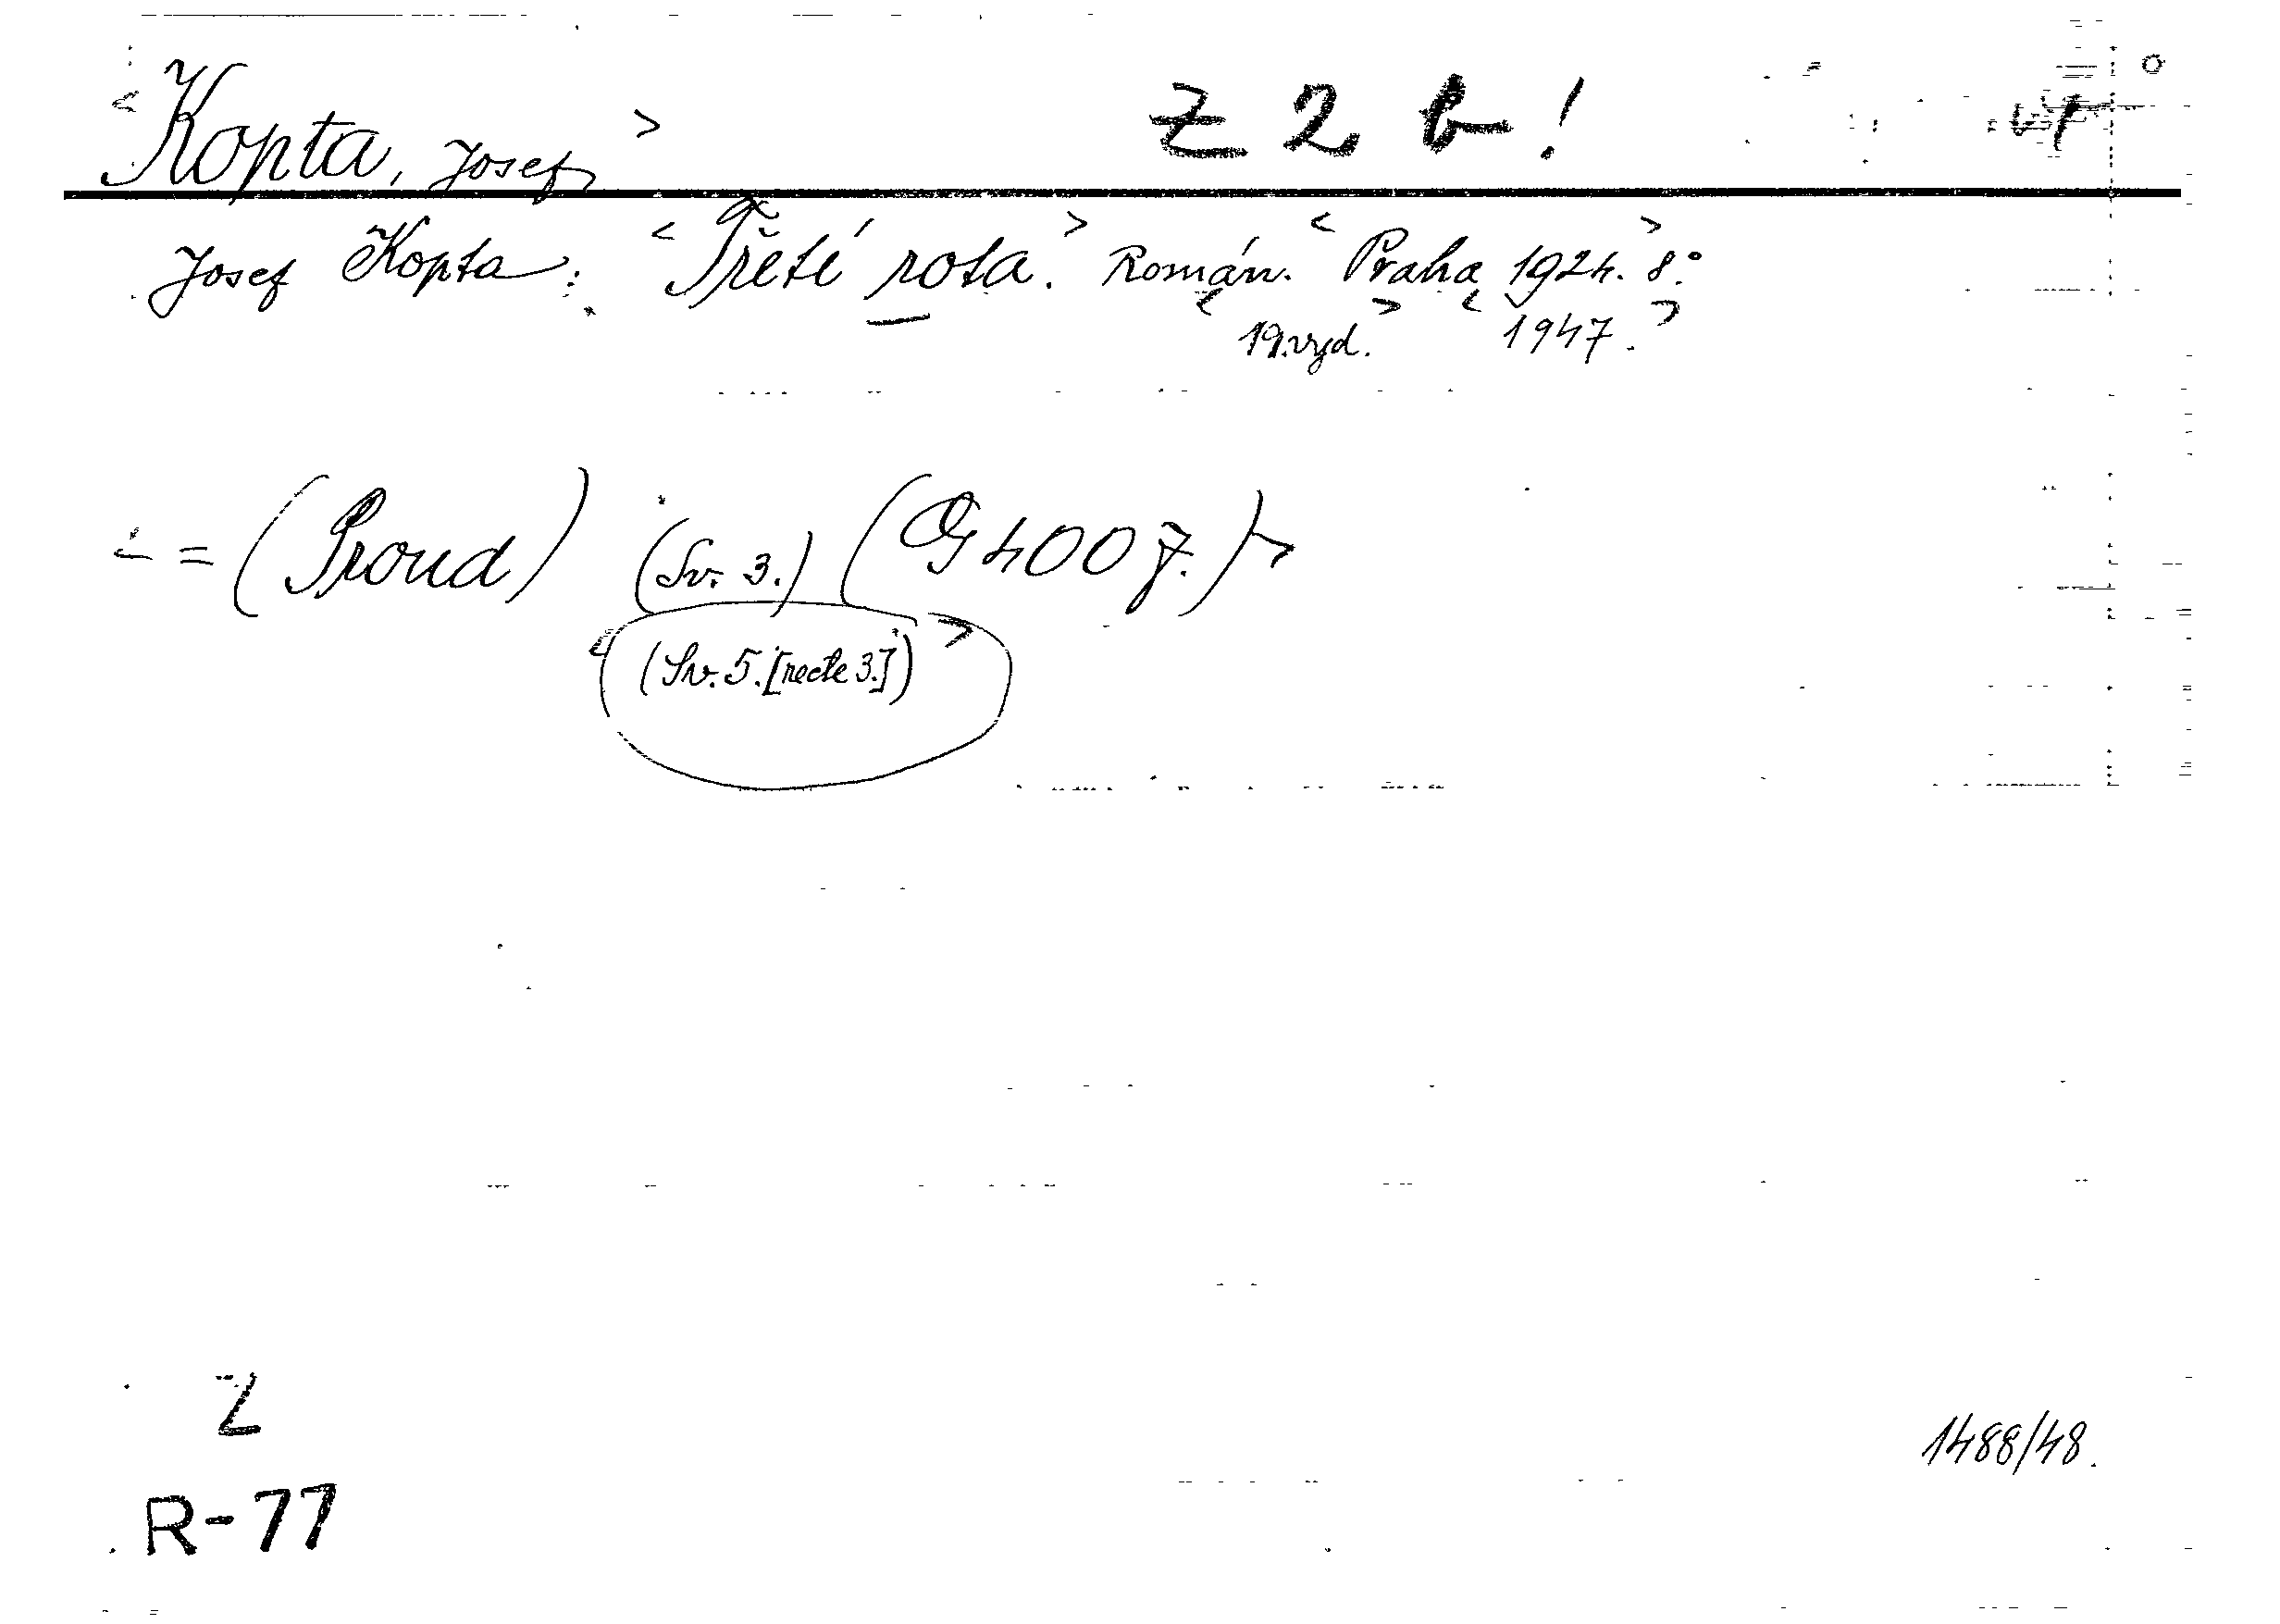 <Kopta, Josef> Z 2 b!
Josef Kopta: <Třetí rota.> Román. <Praha 1924.> 8°.
<19. vyd.> <1947.>
= (Proud) (Sv. 3.) (G 400 j.)>
<(Sv. 5. [recte 3.])>
Z
1488/48.
R-77